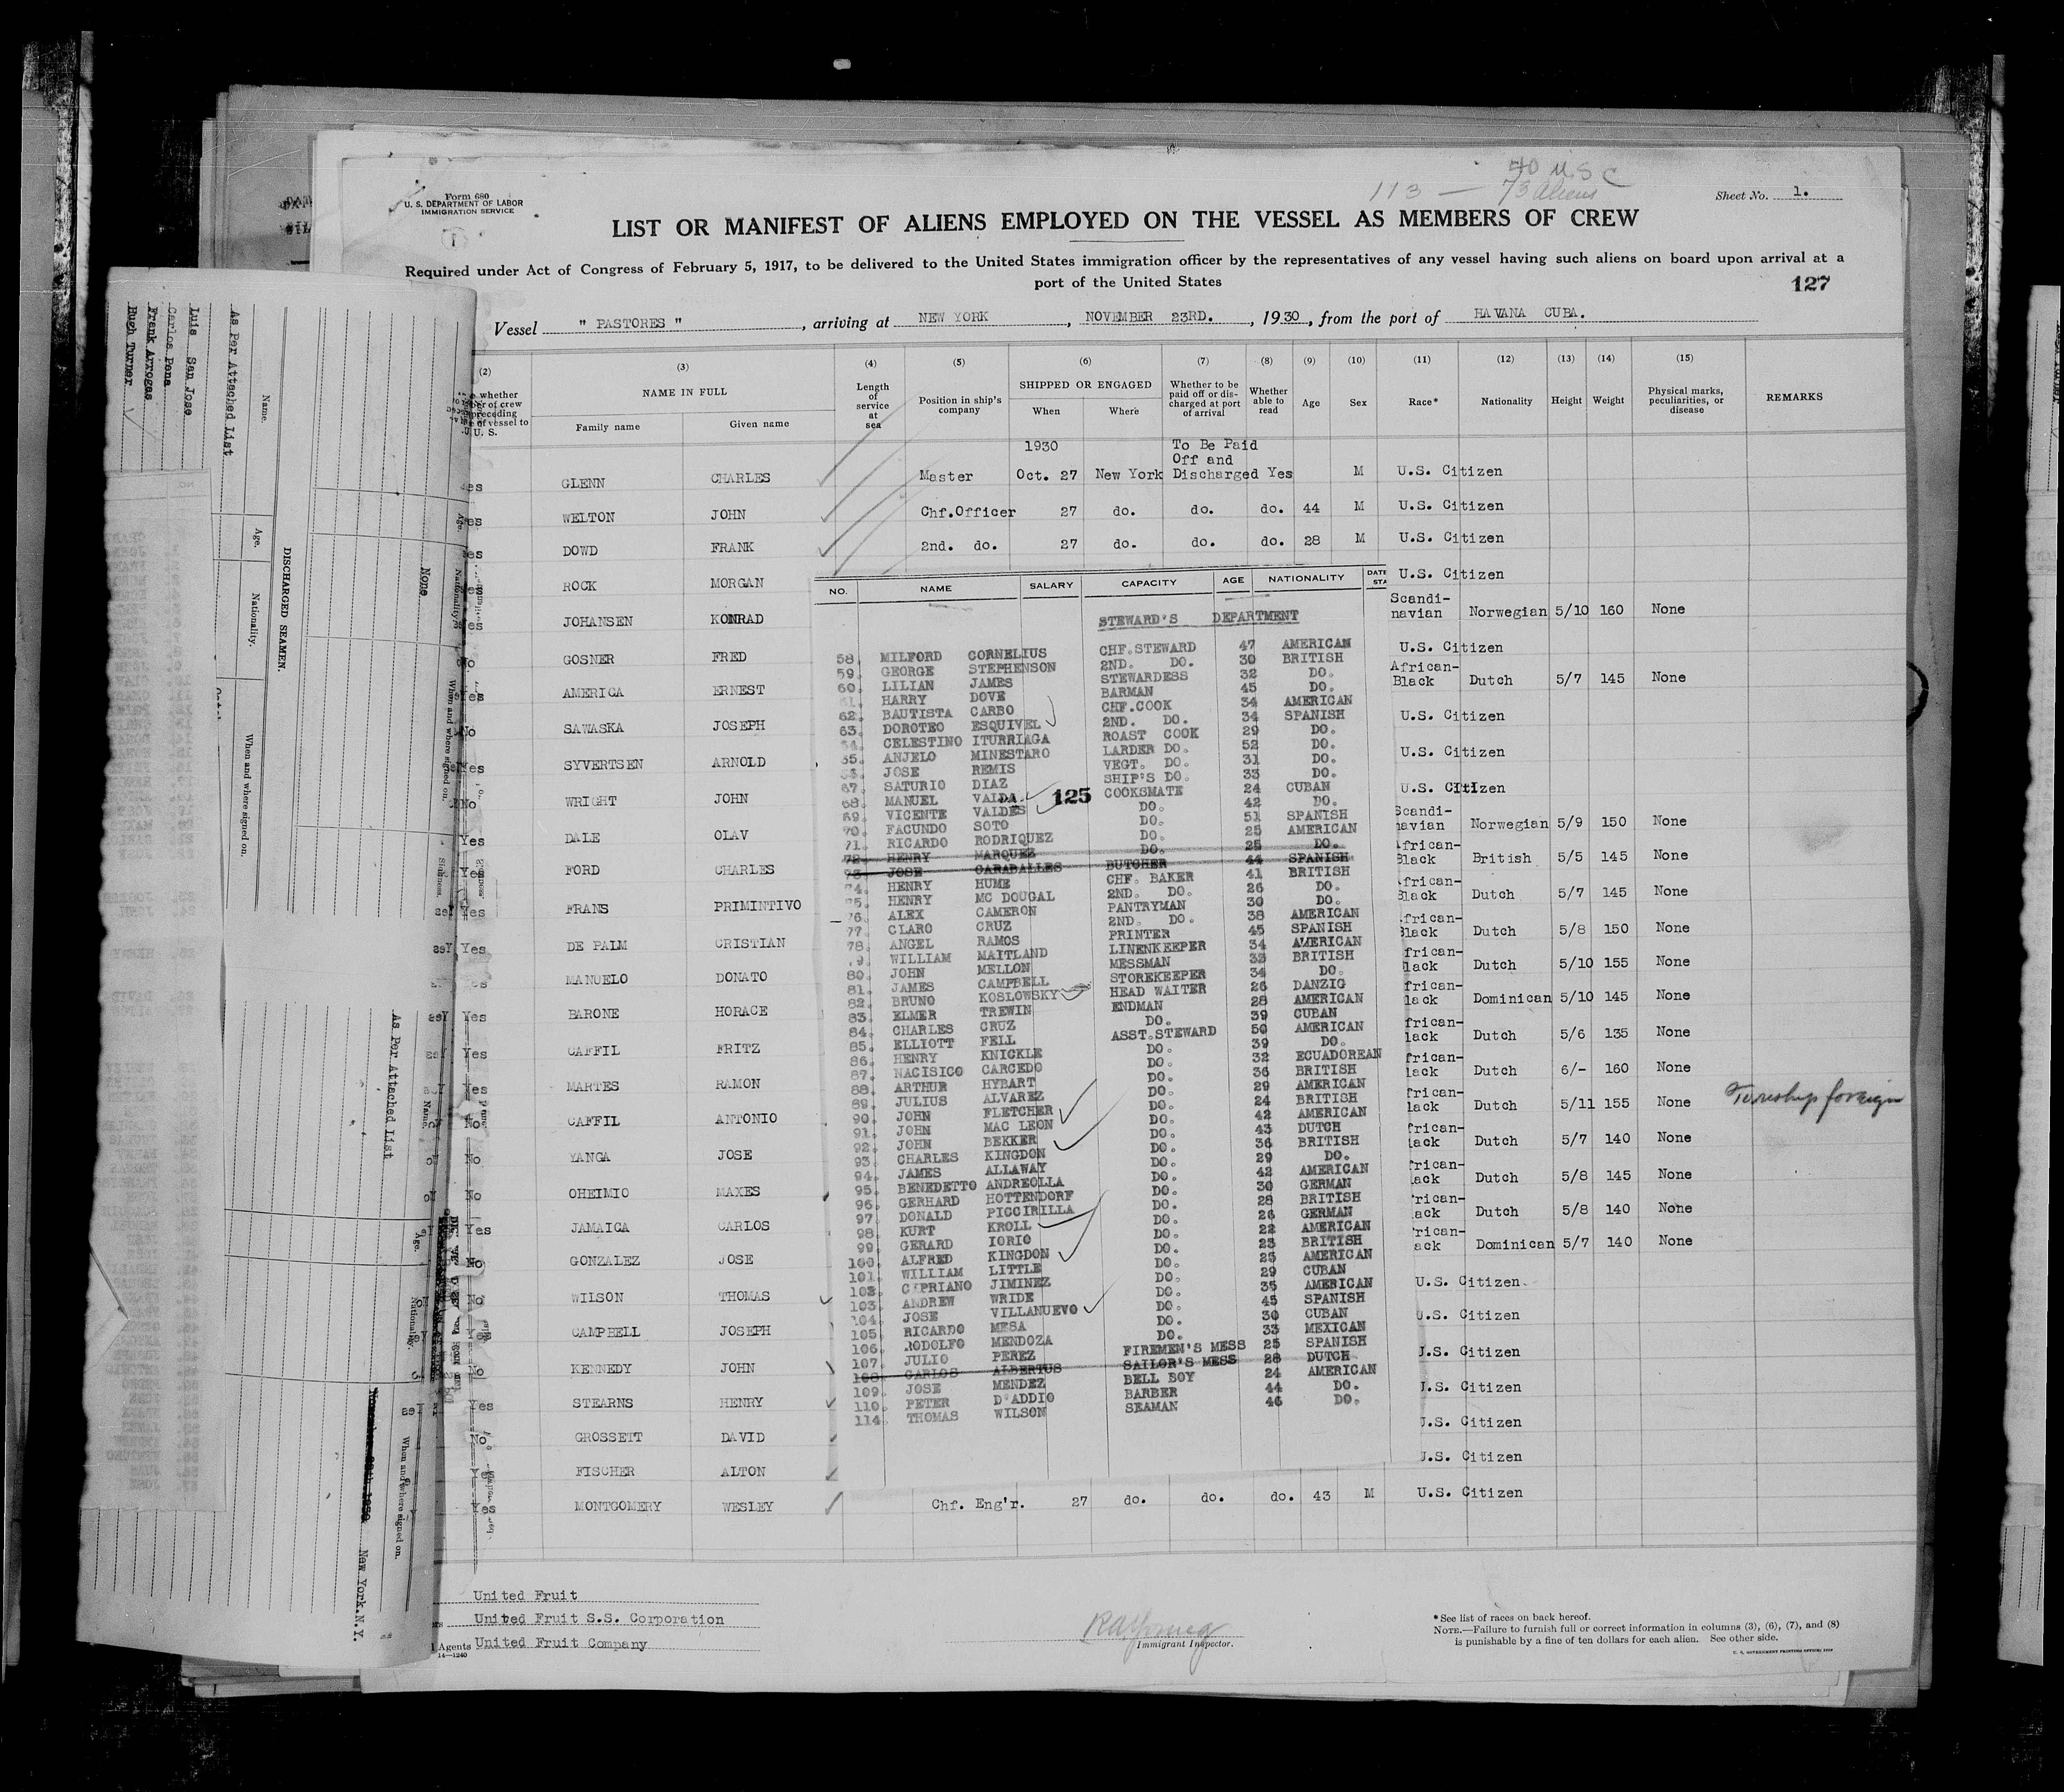 40 U.S.C
113 — 73 aliens
Form 680
U. S. DEPARTMENT OF LABOR
IMMIGRATION SERVICE
Sheet No. 1.
LIST OR MANIFEST OF ALIENS EMPLOYED ON THE VESSEL AS MEMBERS OF CREW
Required under Act of Congress of February 5, 1917, to be delivered to the United States immigration officer by the representatives of any vessel having such aliens on board upon arrival at a
port of the United States
127
Vessel " PASTORES ", arriving at NEW YORK, NOVEMBER 23RD., 1930, from the port of HAVANA CUBA.
(2) (3) (4) (5) (6) (7) (8) (9) (10) (11) (12) (13) (14) (15)
NAME IN FULL
Family name Given name
Length of service at sea
Position in ship's company
SHIPPED OR ENGAGED
When Where
Whether to be paid off or discharged at port of arrival
Whether able to read
Age Sex Race* Nationality Height Weight
Physical marks, peculiarities, or disease
REMARKS
1930 To Be Paid
Off and
GLENN CHARLES Master Oct. 27 New York Discharged Yes M U.S. Citizen
WELTON JOHN Chf.Officer 27 do. do. do. 44 M U.S. Citizen
DOWD FRANK 2nd. do. 27 do. do. do. 28 M U.S. Citizen
ROCK MORGAN U.S. Citizen
JOHANSEN KONRAD Scandi-navian Norwegian 5/10 160 None
No GOSNER FRED U.S. Citizen
Yes AMERICA ERNEST African-Black Dutch 5/7 145 None
No SAWASKA JOSEPH U.S. Citizen
Yes SYVERTSEN ARNOLD U.S. Citizen
No WRIGHT JOHN U.S. Citizen
Yes DALE OLAV Scandi-navian Norwegian 5/9 150 None
Yes FORD CHARLES frican-Black British 5/5 145 None
Yes FRANS PRIMINTIVO frican-Black Dutch 5/7 145 None
Yes DE PALM CRISTIAN frican-Black Dutch 5/8 150 None
MANUELO DONATO frican-lack Dutch 5/10 155 None
Yes BARONE HORACE frican-lack Dominican 5/10 145 None
Yes CAFFIL FRITZ frican-lack Dutch 5/6 135 None
Yes MARTES RAMON frican-lack Dutch 6/- 160 None
No CAFFIL ANTONIO frican-lack Dutch 5/11 155 None
No YANGA JOSE frican-lack Dutch 5/7 140 None
No OHEIMIO MAXES frican-lack Dutch 5/8 145 None
Yes JAMAICA CARLOS rican-ack Dutch 5/8 140 None
No GONZALEZ JOSE rican-ack Dominican 5/7 140 None
No WILSON THOMAS U.S. Citizen
Yes CAMPBELL JOSEPH U.S. Citizen
No KENNEDY JOHN U.S. Citizen
Yes STEARNS HENRY U.S. Citizen
No GROSSETT DAVID U.S. Citizen
Yes FISCHER ALTON U.S. Citizen
Yes MONTGOMERY WESLEY Chf. Eng'r. 27 do. do. do. 43 M U.S. Citizen
NO. NAME SALARY CAPACITY AGE NATIONALITY
STEWARD'S DEPARTMENT
58. MILFORD CORNELIUS CHF.STEWARD 47 AMERICAN
59. GEORGE STEPHENSON 2ND. DO. 30 BRITISH
60. LILIAN JAMES STEWARDESS 32 DO.
61. HARRY DOVE BARMAN 45 DO.
62. BAUTISTA CARBO CHF.COOK 34 AMERICAN
63. DOROTEO ESQUIVEL 2ND. DO. 34 SPANISH
64. CELESTINO ITURRIAGA ROAST COOK 29 DO.
65. ANJELO MINESTARO LARDER DO. 52 DO.
JOSE REMIS VEGT. DO. 31 DO.
67. SATURIO DIAZ SHIP'S DO. 33 DO.
68. MANUEL VALDA COOKSMATE 24 CUBAN
125
69. VICENTE VALDES DO. 42 DO.
70. FACUNDO SOTO DO. 51 SPANISH
71. RICARDO RODRIQUEZ DO. 25 AMERICAN
72. HENRY MARQUEZ DO. 25 DO.
73. JOSE CARABALLES BUTCHER 44 SPANISH
74. HENRY HUME CHF. BAKER 41 BRITISH
75. HENRY MC DOUGAL 2ND. DO. 26 DO.
76. ALEX CAMERON PANTRYMAN 30 DO.
77. CLARO CRUZ 2ND. DO. 38 AMERICAN
78. ANGEL RAMOS PRINTER 45 SPANISH
79. WILLIAM MAITLAND LINENKEEPER 34 AMERICAN
80. JOHN MELLON MESSMAN 33 BRITISH
81. JAMES CAMPBELL STOREKEEPER 34 DO.
82. BRUNO KOSLOWSKY HEAD WAITER 26 DANZIG
83. ELMER TREWIN ENDMAN 28 AMERICAN
84. CHARLES CRUZ DO. 39 CUBAN
85. ELLIOTT FELL ASST.STEWARD 50 AMERICAN
86. HENRY KNICKLE DO. 39 DO.
87. NACISICO CARCEDO DO. 32 ECUADOREAN
88. ARTHUR HYBART DO. 36 BRITISH
89. JULIUS ALVAREZ DO. 29 AMERICAN
90. JOHN FLETCHER DO. 24 BRITISH
91. JOHN MAC LEON DO. 42 AMERICAN
92. JOHN BEKKER DO. 43 DUTCH
93. CHARLES KINGDON DO. 36 BRITISH
94. JAMES ALLAWAY DO. 29 DO.
95. BENEDETTO ANDREOLLA DO. 42 AMERICAN
96. GERHARD HOTTENDORF DO. 30 GERMAN
97. DONALD PICCIRILLA DO. 28 BRITISH
98. KURT KROLL DO. 26 GERMAN
99. GERARD IORIO DO. 22 AMERICAN
100. ALFRED KINGDON DO. 23 BRITISH
101. WILLIAM LITTLE DO. 25 AMERICAN
102. CIPRIANO JIMINEZ DO. 29 CUBAN
103. ANDREW WRIDE DO. 35 AMERICAN
104. JOSE VILLANUEVO DO. 45 SPANISH
105. RICARDO MESA DO. 30 CUBAN
106. RODOLFO MENDOZA DO. 33 MEXICAN
107. JULIO PEREZ FIREMEN'S MESS 25 SPANISH
108. CARLOS ALBERTUS SAILOR'S MESS 28 DUTCH
109. JOSE MENDEZ BELL BOY 24 AMERICAN
110. PETER D'ADDIO BARBER 44 DO.
114. THOMAS WILSON SEAMAN 46 DO.
United Fruit
United Fruit S.S. Corporation
Agents United Fruit Company
14—1240
Immigrant Inspector.
*See list of races on back hereof.
NOTE.—Failure to furnish full or correct information in columns (3), (6), (7), and (8)
is punishable by a fine of ten dollars for each alien. See other side.
U. S. GOVERNMENT PRINTING OFFICE
DISCHARGED SEAMEN.
Name. Age. Nationality. When and where signed on.
As Per Attached List
Luis San Jose
Carlos Pena
Frank Arrogas
Hugh Turner
None
As Per Attached List
Name. Age. Nationality. When and where signed on.
New York.N.Y.